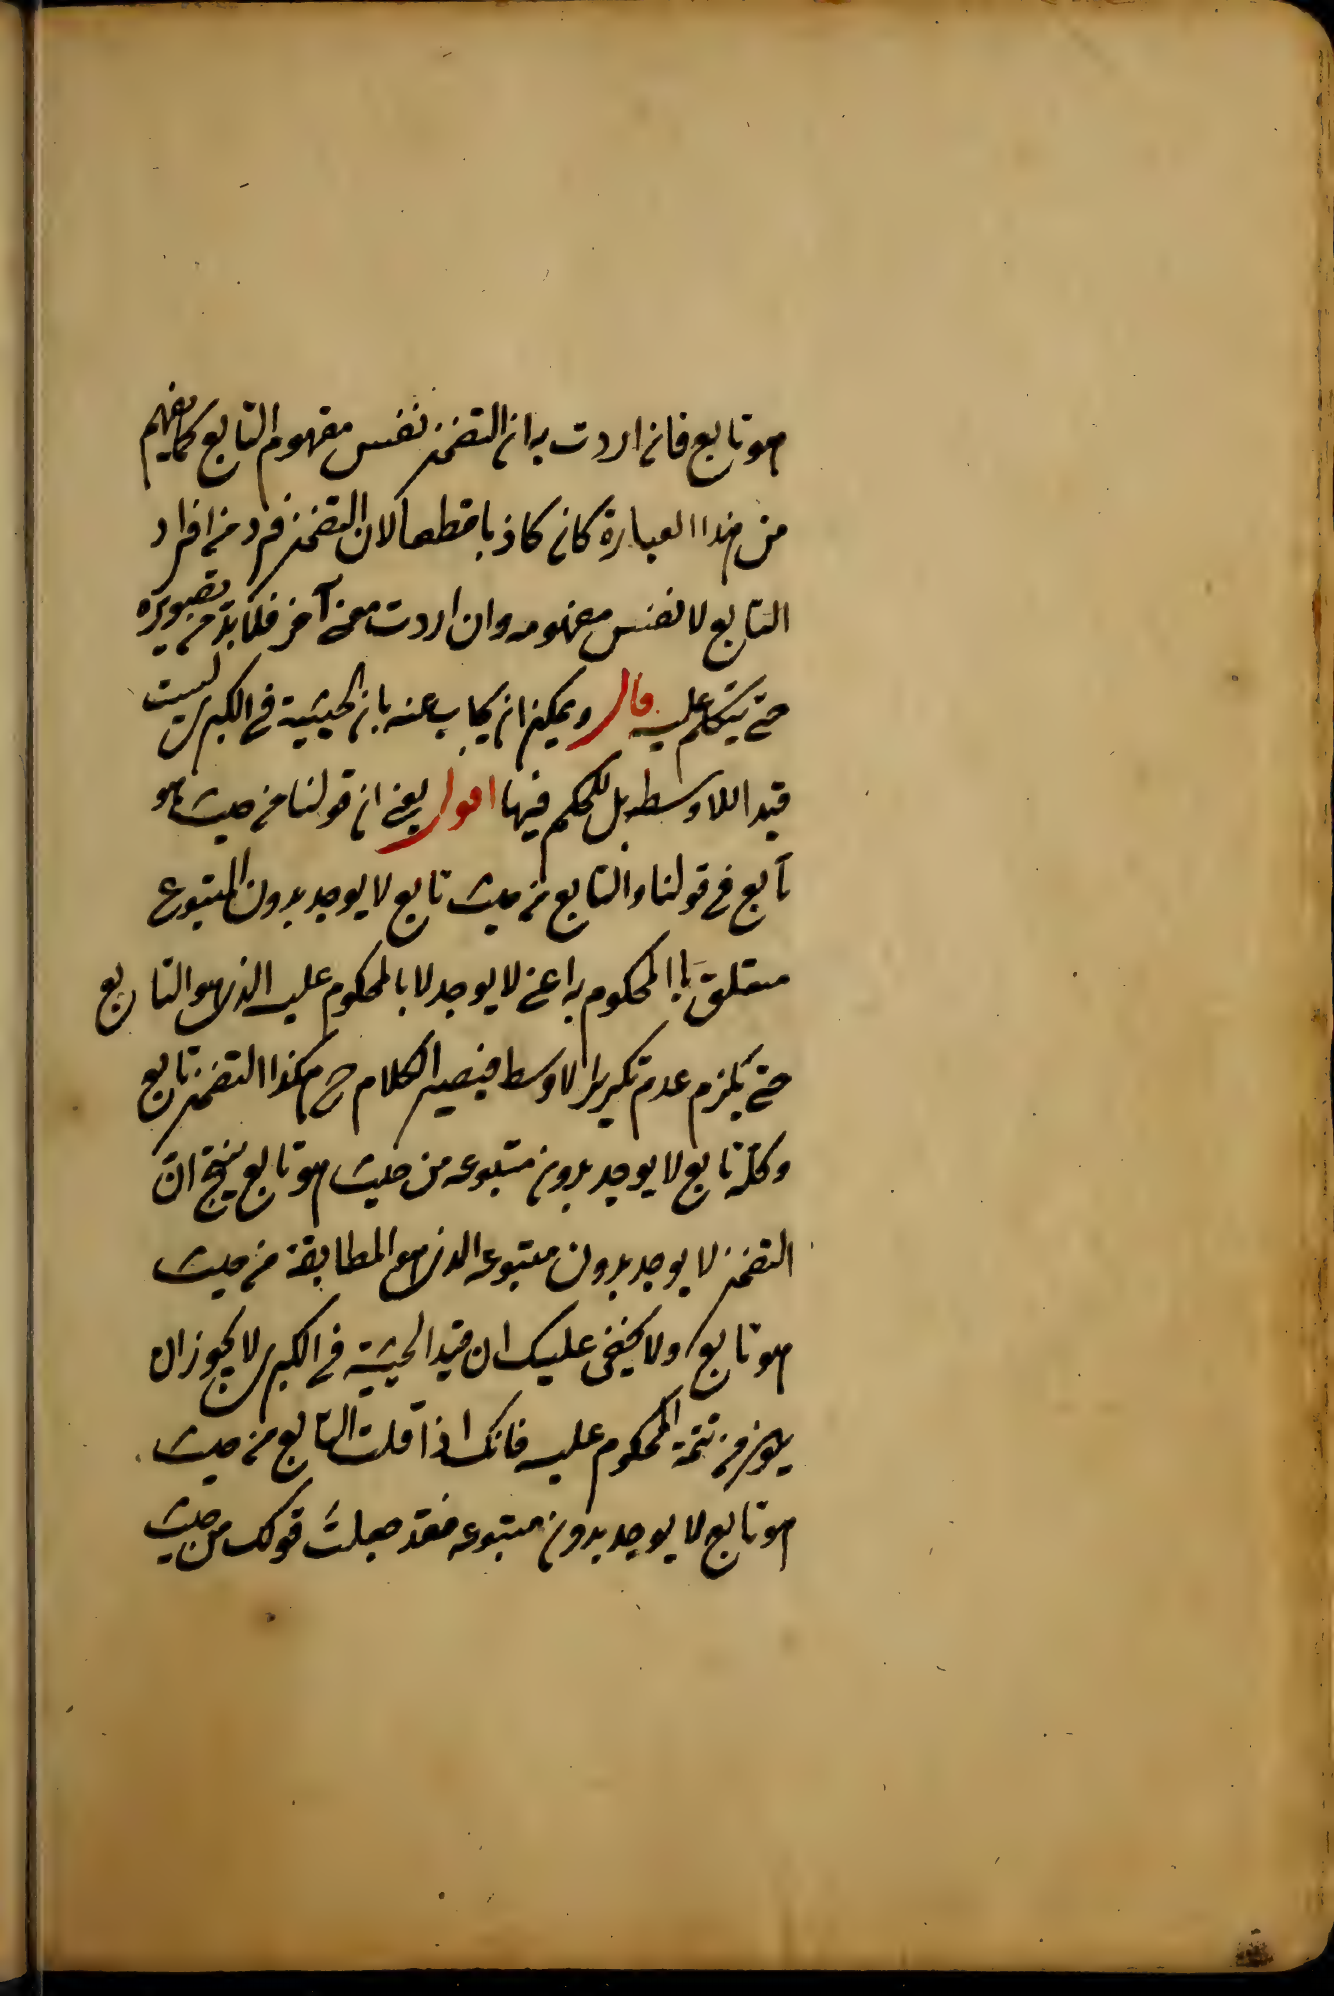 هو تابع فان اردت به ان التضمن نفس مفهوم التابع كما يفهم
من هذا العبارة كان كاذبا قطعا لان التضمن فرد من افراد
التابع لا نفس مفهومه وان اردت معنى آخر فلا بد من تصويره
حتى يتكلم عليه قال ويمكن ان يجاب عنه بان الحيثية في الكبرى ليست
قيد اللاوسط بل للحكم فيها اقول يعني ان قولنا من حيث هو
تابع في قولنا والتابع من حيث تابع لا يوجد بدون المتبوع
متعلق باالمحكوم به اعني لا يوجد لا بالمحكوم عليه الذي هو التابع
حتى يلزم عدم تكرير الاوسط فيصير الكلام ح هكذا التضمن تابع
وكل تابع لا يوجد بدون متبوعه من حيث هو تابع ينتج ان
التضمن لا يوجد بدون متبوعه الذي هو المطابقة من حيث
هو تابع ولا يخفى عليك ان قيد الحيثية في الكبرى لا يجوز ان
يكون من تتمة المحكوم عليه فانك اذا قلت التابع من حيث
هو تابع لا يوجد بدون متبوعه فقد جعلت قولك من حيث